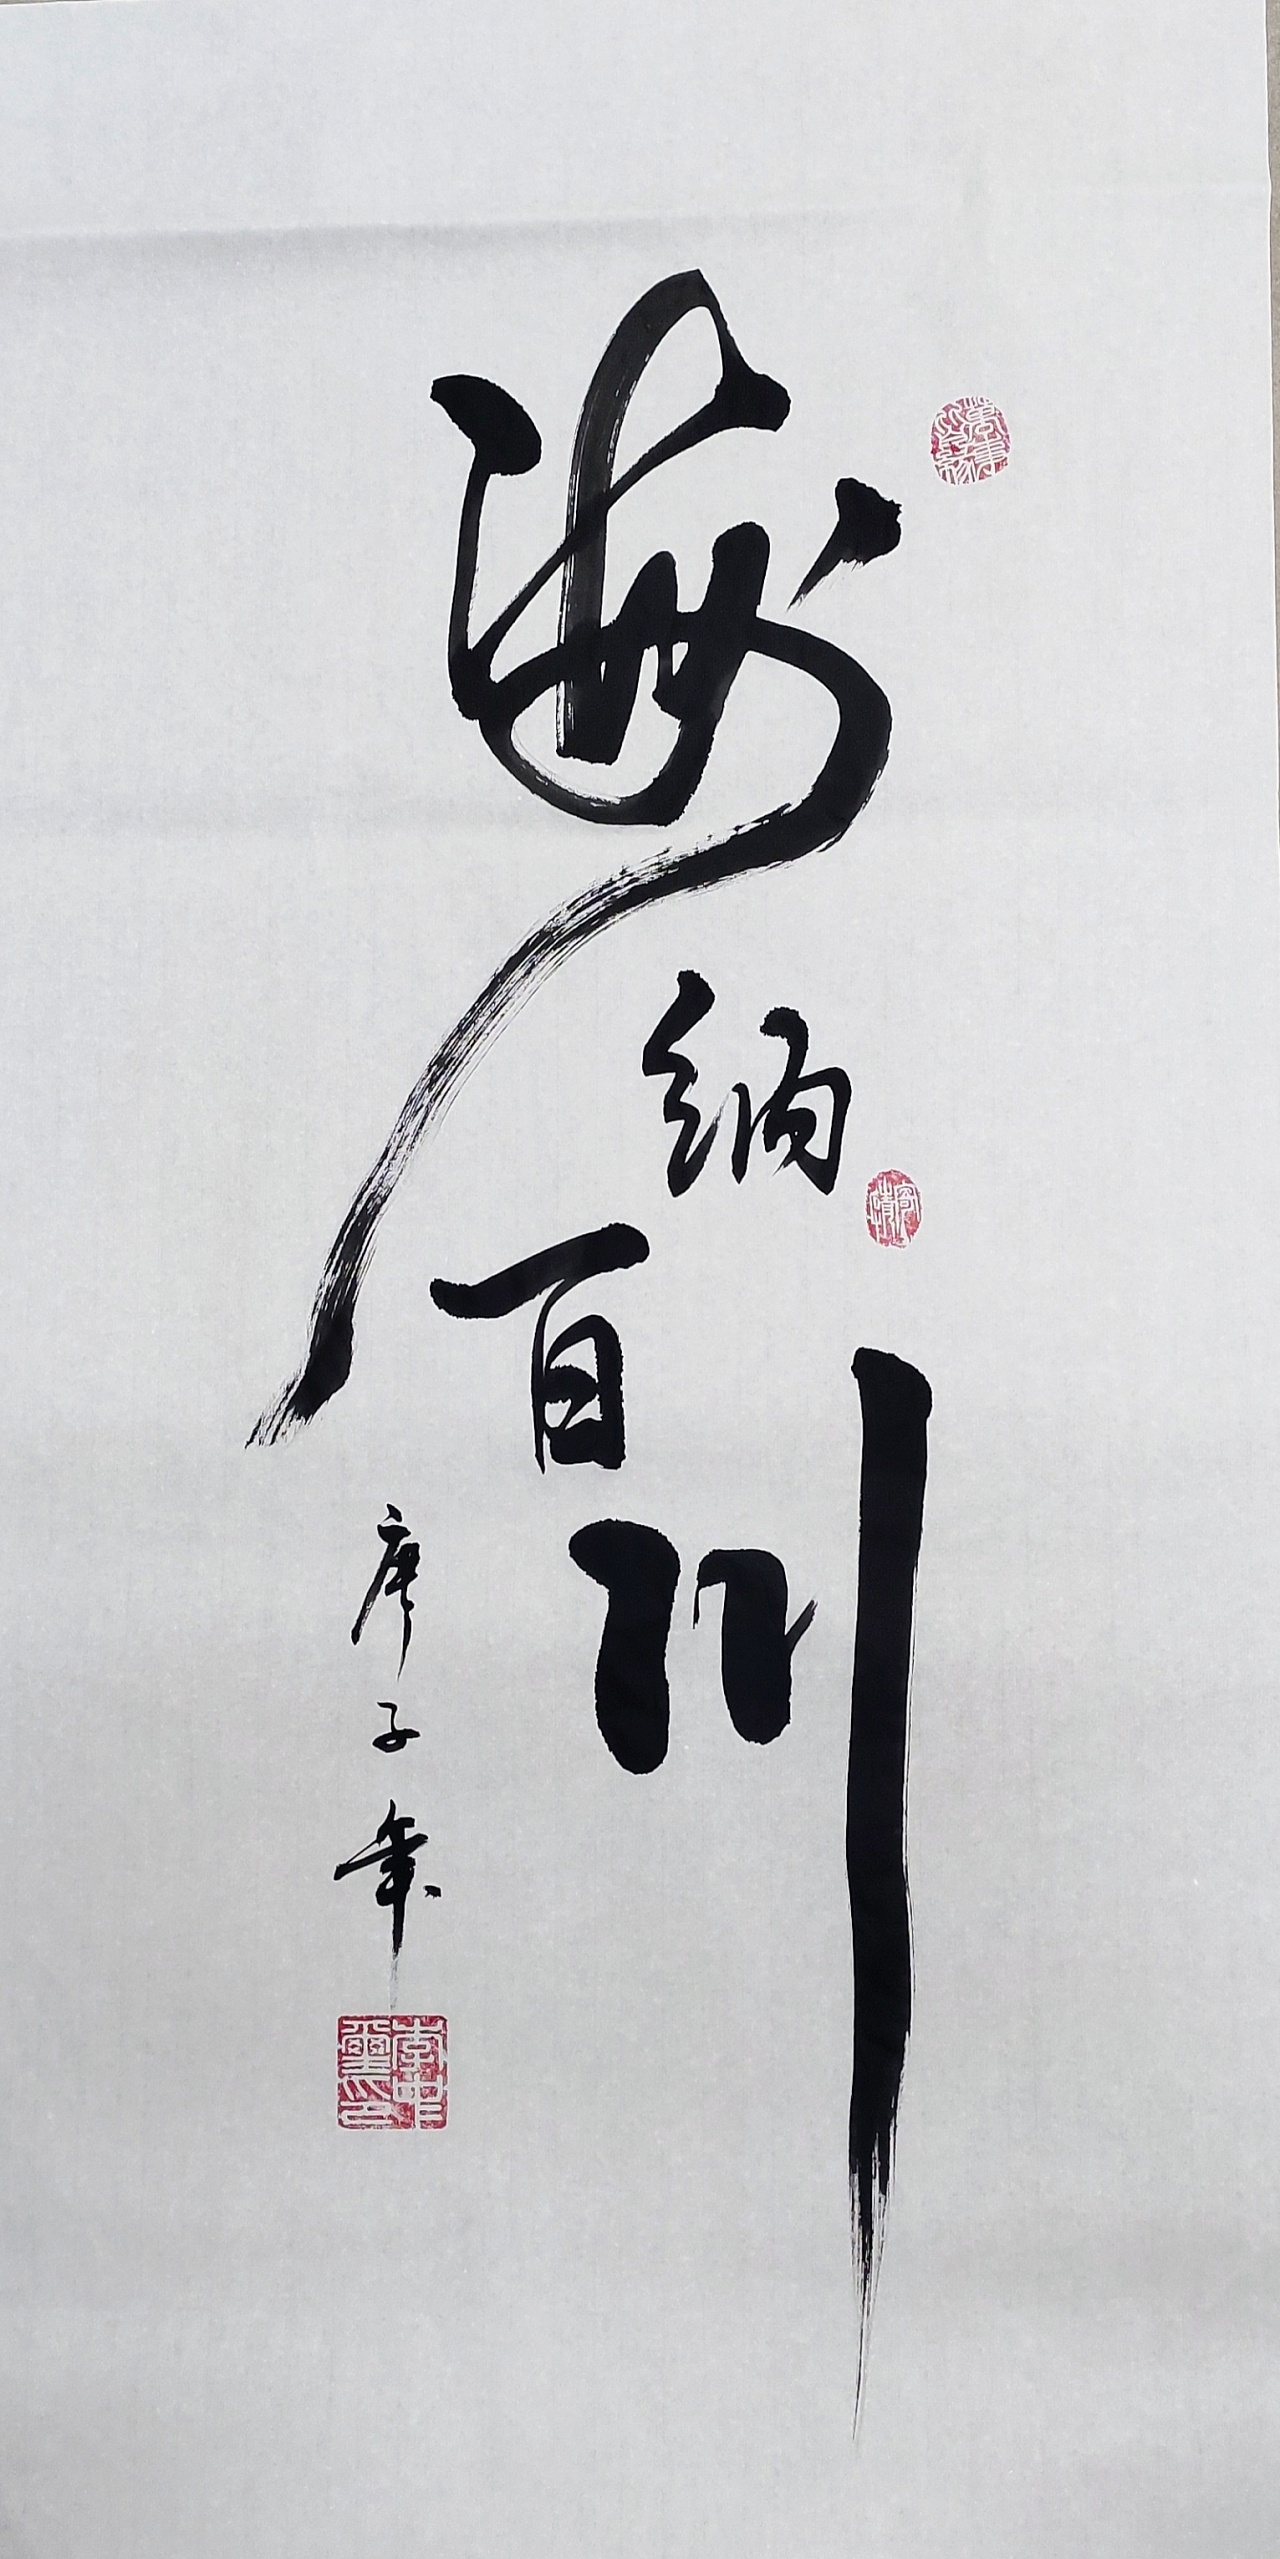 海纳百川
庚子年